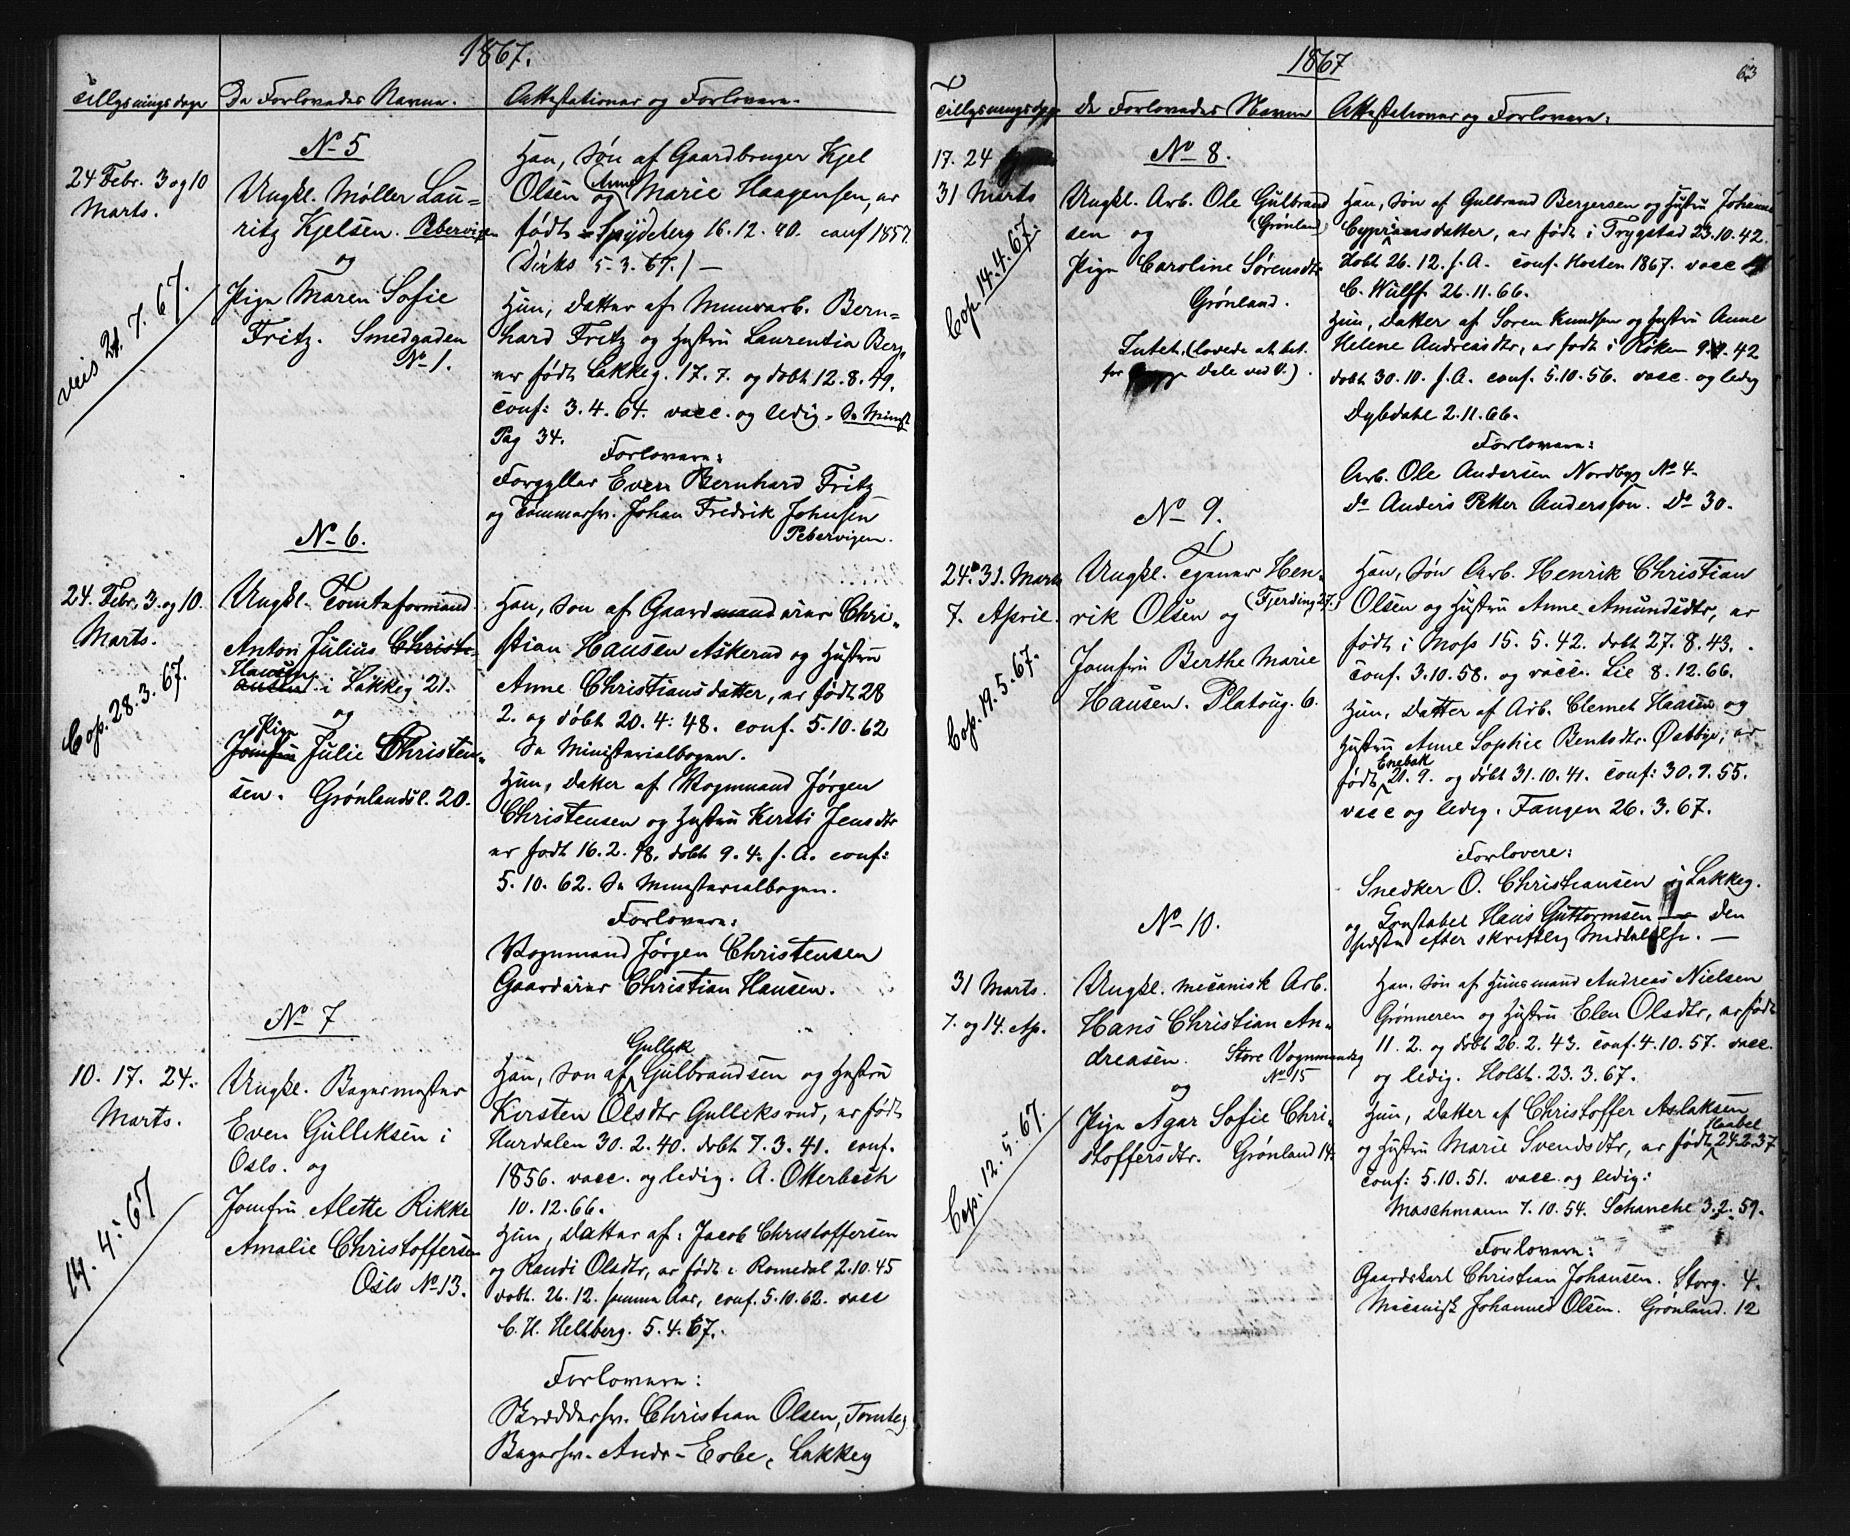 1867.
Tillysningsdage De Forlovedes Navne. Attestationer og Forlovere.
No 5
24 Febr. 3 og 10
Marts.
Ungkl. Møller Lau=
ritz Kjelsen. Pebervigen
og
Pige Maren Sofie
Fritz. Smedgaden
No 1.
veis 21.7.67.
Han, Søn af Gaardbruger Kjel
Olsen og Anne Marie Haagensen, er
født i Spydeberg 16.12.40. conf 1857.
(Dirks 5.3.67.) —
Hun, Datter af Muurarb. Bern=
hard Fritz og Hustru Laurentia Berg,
er født Lakkeg. 17.7. og døbt 12.8.49.
conf: 3.4.64. vacc. og ledig. Se Minist
Pag 34.
Forlovere:
Forgylder Even Bernhard Fritz
og Tømmersv. Johan Fredrik Johnsen
Pebervigen.
No 6.
24. Febr, 3. og 10.
Marts.
Cop. 28.3.67.
Ungkl. Tomteformand
Anton Julius Christi-
Hansen
ansen i Lakkeg 21.
og
Pige
Jomfru Julie Christen-
sen. Grønlandsl. 20.
Han, Søn af Gaardmand eier Chri-
stian Hansen Askerud og Hustru
Anne Christiansdatter, er født 28
2. og døbt 20.4.48. conf. 5.10.62
Se Ministerialbogen.
Hun, Datter af Vognmand Jørgen
Christensen og Hustru Kersti Jensdtr
er født 16.2.48, døbt 9.4. s.A. conf:
5.10.62. Se Ministerialbogen.
Forlovere:
Vognmand Jørgen Christensen
Gaardeier Christian Hansen.
No 7
10. 17. 24.
Marts.
14.4.67
Ungkl. Bagermester
Even Gulliksen i
Oslo. og
Jomfru Alette Rikke
Amalie Christoffersen
Oslo No 13.
Gullik
Han, Søn af Gulbrandsen og Hustru
Kirsten Olsdtr Gulliksrud, er født
Hurdalen 30.2.40. døbt 7.3.41. conf.
1856. vacc. og ledig. A. Otterbech
10.12.66.
Hun, Datter af: Jacob Christoffersen
og Randi Olsdtr, er født i Romedal 2.10.45
døbt. 26.12. samme Aar, conf. 5.10.62. vacc
C. H. Hellberg. 5.4.67.
Forlovere:
Skræddersv. Christian Olsen, Tomteg
Bagersv. Andr. Erbe, Lakkeg
1867
63
Tillysningsdage De Forlovedes Navne Attestationer og Forlovere:
No 8.
17. 24
31 Marts
Cop. 14.4.67.
Ungkl. Arb. Ole Gulbrand
sen og (Grønland)
Pige Caroline Sørensdtr
Grønland.
Intet. (lovede at bet.
for Dele ved V.)
Han, Søn af Gulbrand Bergersen og Hustru Johanne
Cypriansdatter, er født i Trygstad 23.10.42.
døbt 26.12. s.A. conf. Høsten 1867. vacc
C. Wulff 26.11.66.
Hun, Datter af Søren Knudsen og Hustru Anne
Helene Andreasdtr, er født i Røken 9.9.42
døbt 30.10. s.A. conf. 5.10.56. vacc. og ledig
Dybdahl 2.11.66.
Forlovere:
Arb. Ole Andersen Nordbyg No 4.
do Anders Petter Andersson. do 30.
No 9.
24. 31. Marts
7. April.
Cop. 19.5.67.
Ungkl. Tjener Hen-
rik Olsen og (Fjerding 27.)
Jomfru Berthe Marie
Hansen. Platoug. 6.
Han, Søn Arb. Henrik Christian
Olsen og Hustru Anne Amundsdtr, er
født i Moss 15.5.42. døbt 27.8.43.
conf. 3.10.58. og vacc. Lie 8.12.66.
Hun, Datter af Arb. Clemet Hansen og
Hustru Anne Sophie Bentsdtr. Østbye, er
Enebak
født 21.9. og døbt 31.10.41. conf: 30.9.55.
vacc og ledig. Fangen 26.3.67.
Forlovere:
Snedker O. Christiansen i Lakkeg.
og Constabel Hans Guttormsen — Den
sidste efter skriftlig Meddelelse. —
No 10.
31 Marts.
7. og 14. Ap.
Cop. 12.5.67.
Ungkl. mecanisk Arb.
Hans Christian An-
dreasen. Store Vognmandsg
og No 15
Pige Agar Sofie Chri-
stoffersdtr. Grønland 14.
Han, Søn af Huusmand Andreas Nielsen
Grønneren og Hustru Elen Olsdtr, er født
11.2. og døbt 26.2.43. conf. 4.10.57. vacc.
og ledig. Holst. 23.3.67.
Hun, Datter af Christoffer Aslaksen
Haabel
og Hustru Marie Svendsdtr, er født 24.2.37
conf: 5.10.51. vacc. og ledig:
Maschmann 7.10.54. Schanche 3.2.59.
Forlovere:
Gaardskarl Christian Johansen. Storg. 4.
Mecanisk Johannes Olsen. Grønland. 12